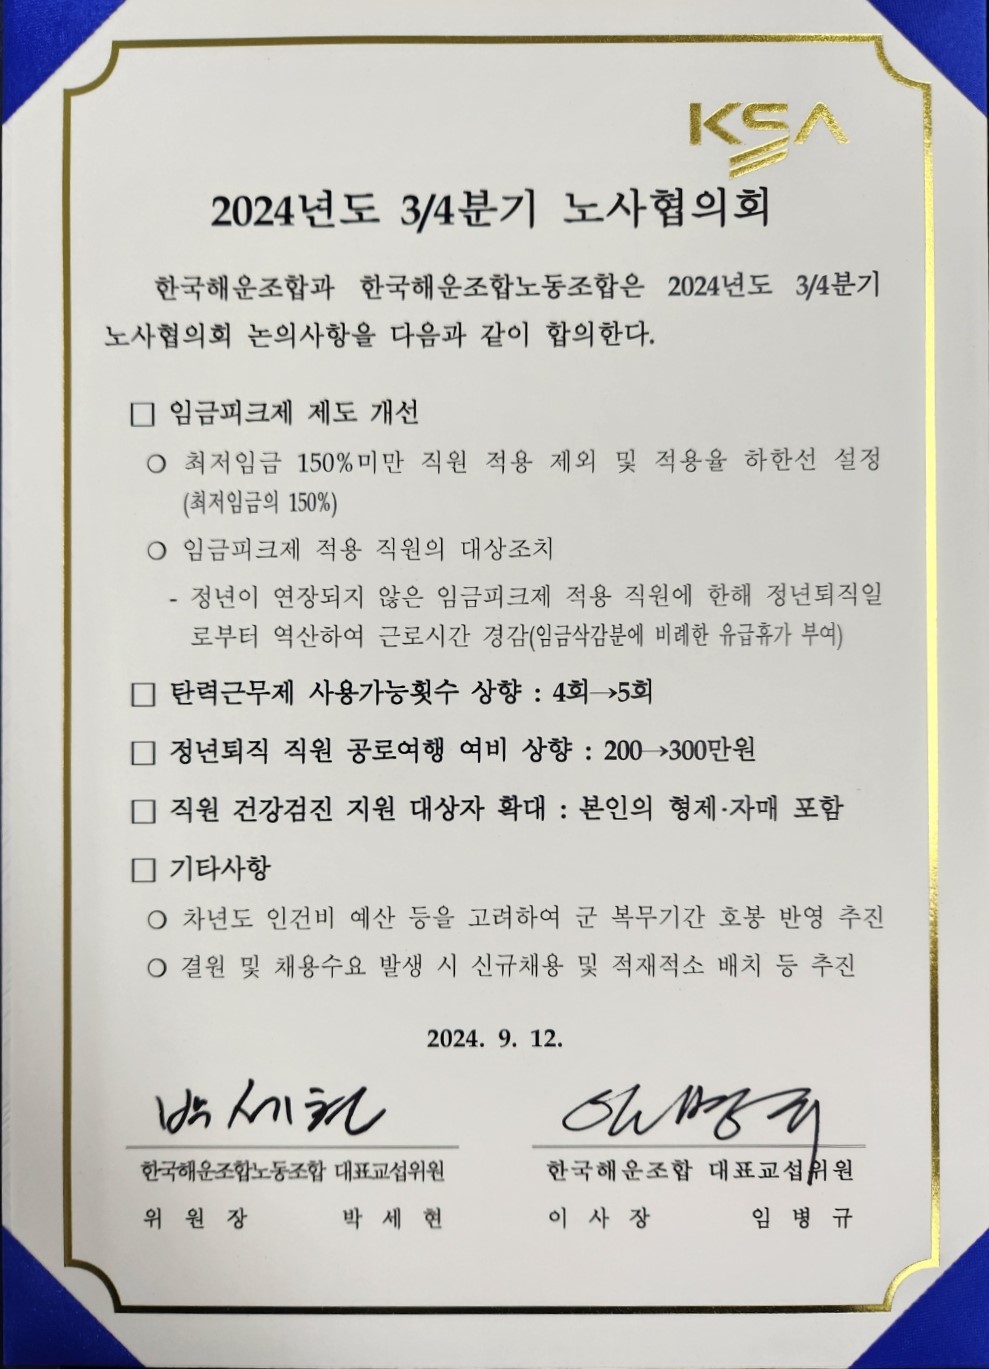 KSA
2024년도 3/4분기 노사협의회
한국해운조합과 한국해운조합노동조합은 2024년도 3/4분기
노사협의회 논의사항을 다음과 같이 합의한다.
□ 임금피크제 제도 개선
❍ 최저임금 150%미만 직원 적용 제외 및 적용율 하한선 설정
(최저임금의 150%)
❍ 임금피크제 적용 직원의 대상조치
- 정년이 연장되지 않은 임금피크제 적용 직원에 한해 정년퇴직일
로부터 역산하여 근로시간 경감(임금삭감분에 비례한 유급휴가 부여)
□ 탄력근무제 사용가능횟수 상향 : 4회→5회
□ 정년퇴직 직원 공로여행 여비 상향 : 200→300만원
□ 직원 건강검진 지원 대상자 확대 : 본인의 형제·자매 포함
□ 기타사항
❍ 차년도 인건비 예산 등을 고려하여 군 복무기간 호봉 반영 추진
❍ 결원 및 채용수요 발생 시 신규채용 및 적재적소 배치 등 추진
2024. 9. 12.
박세현 임병규
한국해운조합노동조합 대표교섭위원 한국해운조합 대표교섭위원
위 원 장 박 세 현 이 사 장 임 병 규